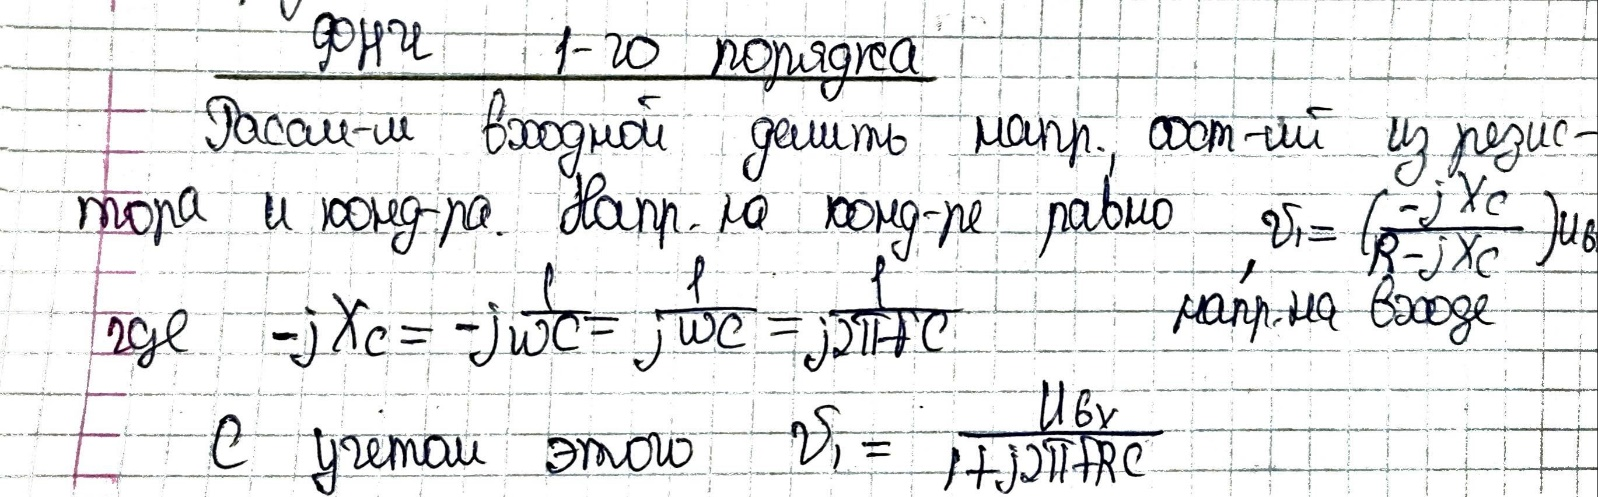 ФНЧ 1-го порядка
Рассм-м входной делить напр., сост-ий из резис-
тора и конд-ра. Напр. на конд-ре равно υ₁ = (-jXc / R-jXc) Uв
где -jXc = -j 1/ωC = 1/jωC = 1/j2πfC , напр. на входе
С учетом этого υ₁ = Uвх / 1+j2πfRC